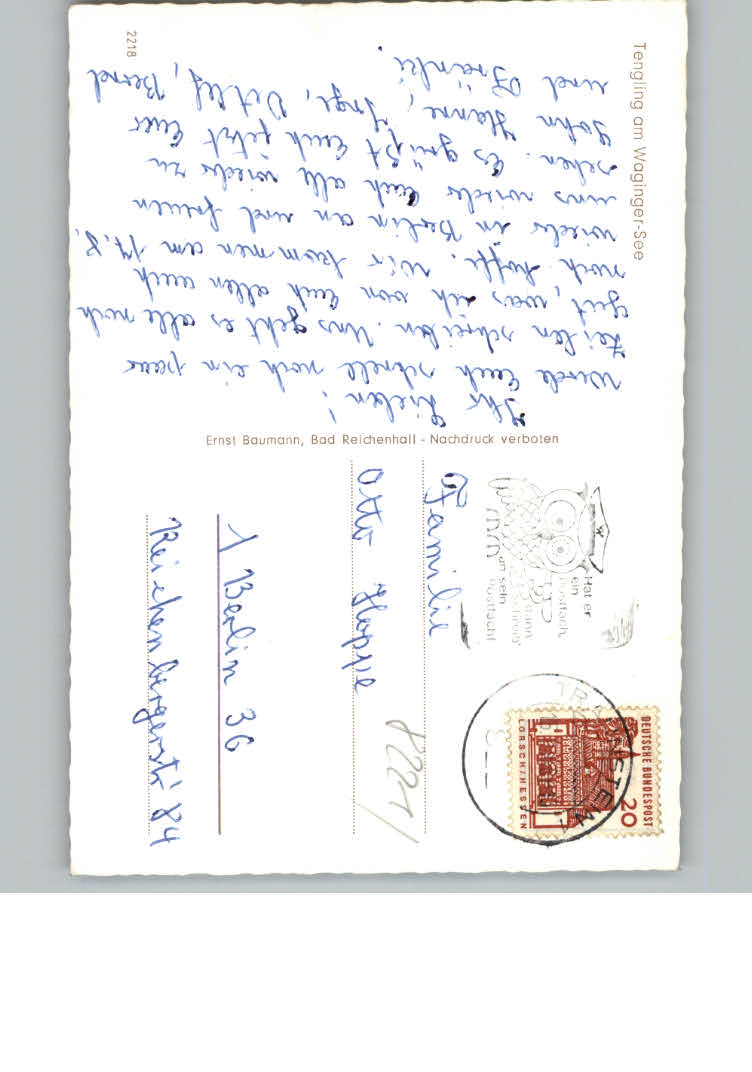 Tengling am Waginger-See
2218
Ihr Lieben!
Werde Euch schnell noch ein paar
Zeilen schreiben. Uns geht es alle noch
gut, was ich von Euch allen auch
noch hoffe. Wir kommen am 17.8.
wieder in Berlin an und freuen
uns wieder Euch alle wieder zu
sehen. Es grüßt Euch jetzt Euer
Sohn Hanne, Inge, Detlef, Bernd
und Fränki.
Ernst Baumann, Bad Reichenhall - Nachdruck verboten
Hat er
ein
Postfach,
dann
schreib'
an sein
Postfach!
TRAUNSTEIN 1
DEUTSCHE BUNDESPOST
20
LORSCH/HESSEN
Familie
Otto Hoppe
8221/
1 Berlin 36
Reichenbergerstr 84